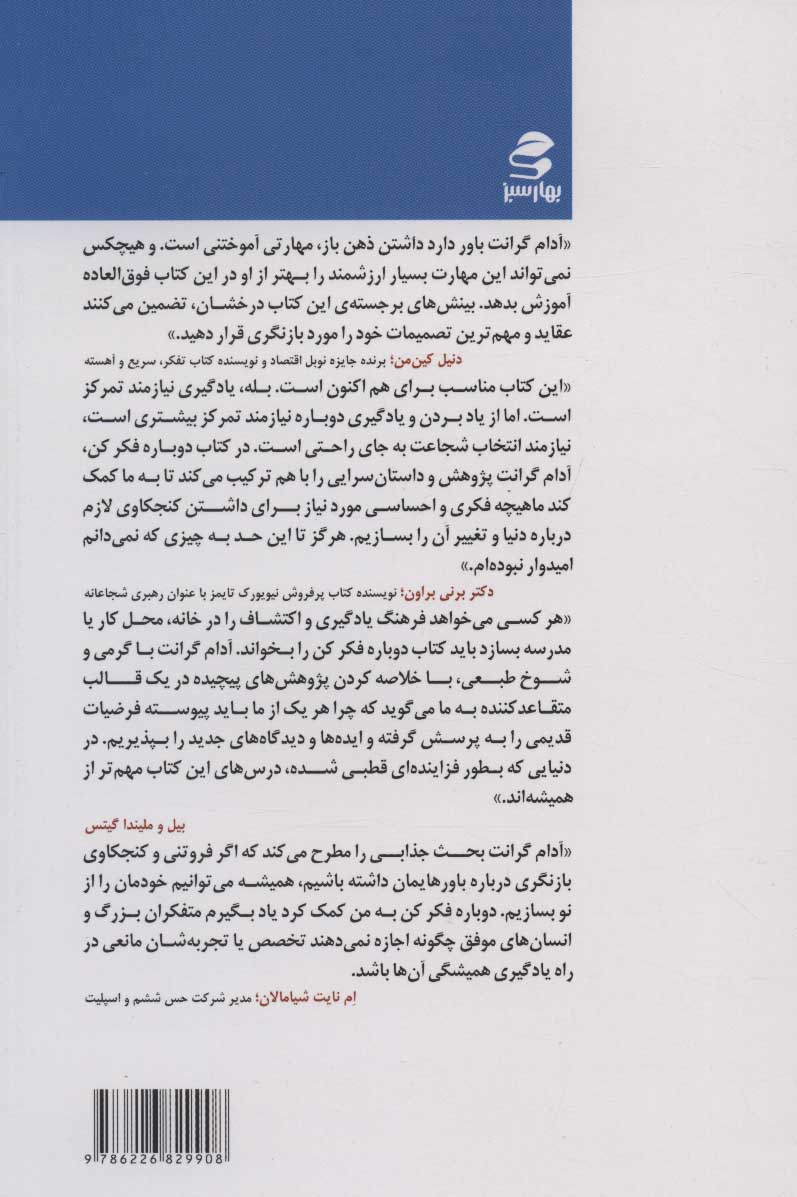 بهار سبز
«آدام گرانت باور دارد داشتن ذهن باز، مهارتی آموختنی است. و هیچکس
نمی‌تواند این مهارت بسیار ارزشمند را بهتر از او در این کتاب فوق‌العاده
آموزش بدهد. بینش‌های برجسته‌ی این کتاب درخشان، تضمین می‌کنند
عقاید و مهم‌ترین تصمیمات خود را مورد بازنگری قرار دهید.»
دنیل کین‌من؛ برنده جایزه نوبل اقتصاد و نویسنده کتاب تفکر، سریع و آهسته
«این کتاب مناسب برای هم اکنون است. بله، یادگیری نیازمند تمرکز
است. اما از یاد بردن و یادگیری دوباره نیازمند تمرکز بیشتری است،
نیازمند انتخاب شجاعت به جای راحتی است. در کتاب دوباره فکر کن،
آدام گرانت پژوهش و داستان‌سرایی را با هم ترکیب می‌کند تا به ما کمک
کند ماهیچه فکری و احساسی مورد نیاز برای داشتن کنجکاوی لازم
درباره دنیا و تغییر آن را بسازیم. هرگز تا این حد به چیزی که نمی‌دانم
امیدوار نبوده‌ام.»
دکتر برنی براون؛ نویسنده کتاب پرفروش نیویورک تایمز با عنوان رهبری شجاعانه
«هر کسی می‌خواهد فرهنگ یادگیری و اکتشاف را در خانه، محل کار یا
مدرسه بسازد باید کتاب دوباره فکر کن را بخواند. آدام گرانت با گرمی و
شوخ طبعی، با خلاصه کردن پژوهش‌های پیچیده در یک قالب
متقاعدکننده به ما می‌گوید که چرا هر یک از ما باید پیوسته فرضیات
قدیمی را به پرسش گرفته و ایده‌ها و دیدگاه‌های جدید را بپذیریم. در
دنیایی که بطور فزاینده‌ای قطبی شده، درس‌های این کتاب مهم‌تر از
همیشه‌اند.»
بیل و ملیندا گیتس
«آدام گرانت بحث جذابی را مطرح می‌کند که اگر فروتنی و کنجکاوی
بازنگری درباره باورهایمان داشته باشیم، همیشه می‌توانیم خودمان را از
نو بسازیم. دوباره فکر کن به من کمک کرد یاد بگیرم متفکران بزرگ و
انسان‌های موفق چگونه اجازه نمی‌دهند تخصص یا تجربه‌شان مانعی در
راه یادگیری همیشگی آن‌ها باشد.
اِم نایت شیامالان؛ مدیر شرکت حس ششم و اسپلیت
9 786226 829908